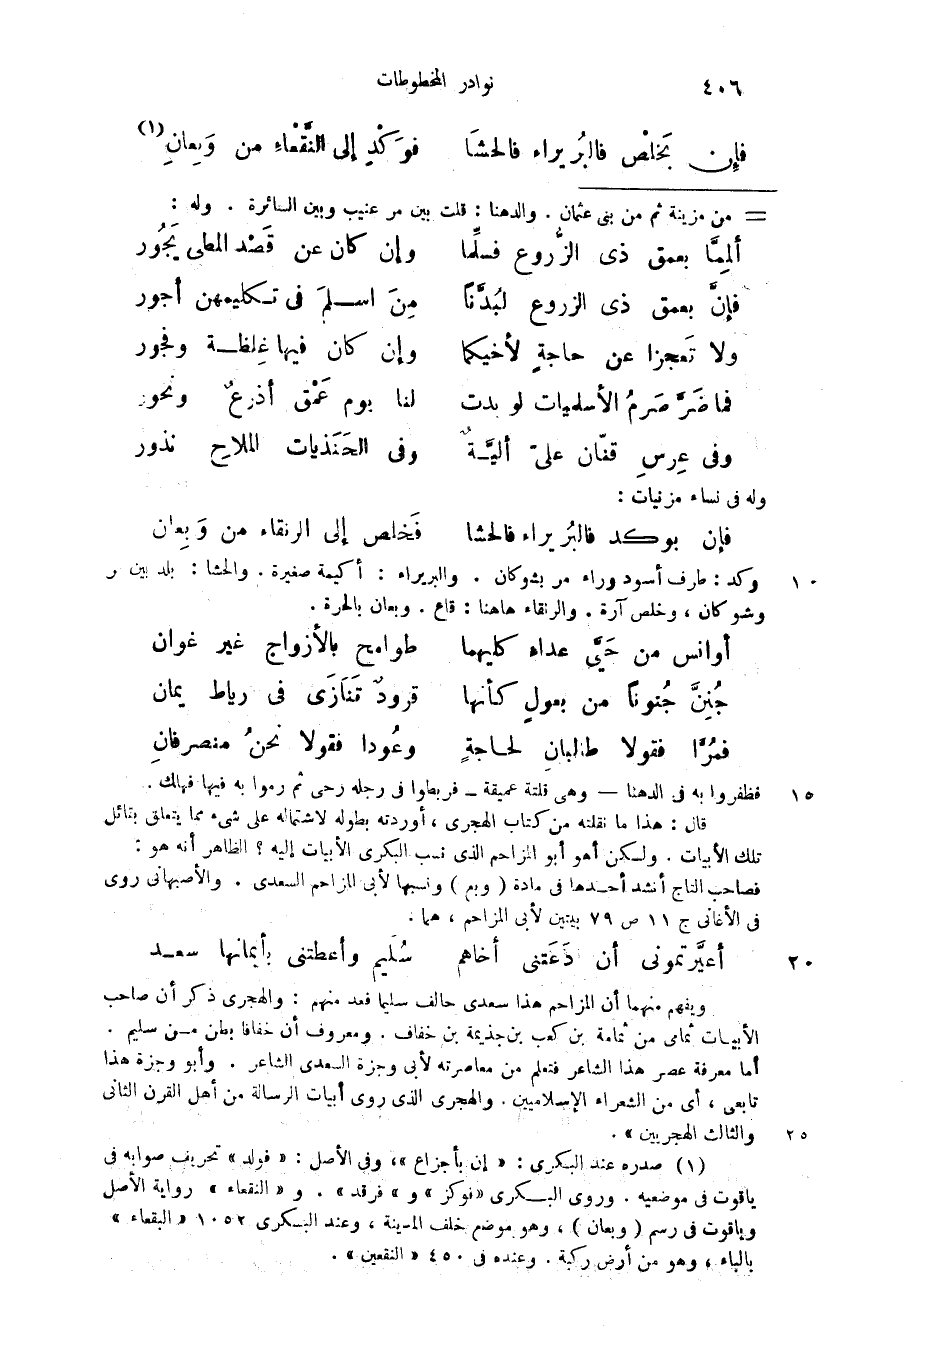 ٤٠٦ نوادر المخطوطات
فإن بخلص فالبُريراء فالحشَا فوَكْدٍ إلى النَّقْعاء من وَبِعانِ (١)
= من مزينة ثم من بنى عثمان . والدهنا : قلت بين مر عنيب وبين السائرة . وله :
ألِمَّا بعمق ذى الزُّروع فسلِّما وإن كان عن قَصْد المطى يَجُور
فإنَّ بعمق ذى الزروع لبُدَّنًا مِنَ اسلمَ فى تكليمهن أجور
ولا تَعجزا عن حاجةٍ لأخيكما وإن كان فيها غِلظة وفجور
فما ضَرَّ صَرمُ الأسلميات لو بدت لنا يوم عَمْق أذرعٌ ونحور
وفى عِرسِ قفّان علىّ أليَّةٌ وفى الحَنَذيات الملاح نذور
وله فى نساء مزنيات :
فإن بوكد فالبُريراء فالحشا فَخلص إلى الرنقاء من وَبِعان
١٠ وكد : طرف أسود وراء مر بشوكان . والبريراء : أكيمة صغيرة . والحشا : بلد بين و
وشوكان ، وخلص آرة . والرنقاء هاهنا : قاع . وبعان بالحرة .
أوانس من حَيَّى عداء كليهما طوامح بالأزواج غير غوان
جُنِنَّ جُنونًا من بعولٍ كأنها قرودٌ تَنَازَى فى رياط يمان
فمُرَّا فقولا طالبانِ لحاجةٍ وعُودا فقولا نحنُ منصرفانِ
١٥ فظفروا به فى الدهنا — وهى قلتة عميقة — فربطوا فى رجله رحى ثم رموا به فيها فهلك .
قال : هذا ما نقلته من كتاب الهجرى ، أوردته بطوله لاشتماله على شىء مما يتعلق بقائل
تلك الأبيات . ولكن أهو أبو المزاحم الذى نسب البكرى الأبيات إليه ؟ الظاهر أنه هو :
فصاحب التاج أنشد أحدها فى مادة ( وبم ) ونسبها لأبى المزاحم السعدى . والأصبهانى روى
فى الأغانى ج ١١ ص ٧٩ بيتين لأبى المزاحم ، هما .
٢٠ أعيَّرتمونى أن دَعَتنى أخاهم سُلَيم وأعطتنى بأيمانها سعد
ويفهم منهما أن المزاحم هذا سعدى حالف سليما فعد منهم : والهجرى ذكر أن صاحب
الأبيات ثمامى من ثمامة بن كعب بن جذيمة بن خفاف . ومعروف أن خفافا بطن من سليم .
أما معرفة عصر هذا الشاعر فتعلم من معاصرته لأبى وجزة السعدى الشاعر . وأبو وجزة هذا
تابعى ، أى من الشعراء الإسلاميين . والهجرى الذى روى أبيات الرسالة من أهل القرن الثانى
٢٥ والثالث الهجريين » .
(١) صدره عند البكرى : « إن بأجزاع » ، وفى الأصل : « فولد » تحريف صوابه فى
ياقوت فى موضعيه . وروى البكرى « فوكز » و « فرقد » . و « النقعاء » رواية الأصل
وياقوت فى رسم ( وبعان ) ، وهو موضع خلف المدينة ، وعند البكرى ١٠٥٢ « البقعاء »
بالباء ، وهو من أرض ركبة . وعنده فى ٤٥٠ « النقعين » .